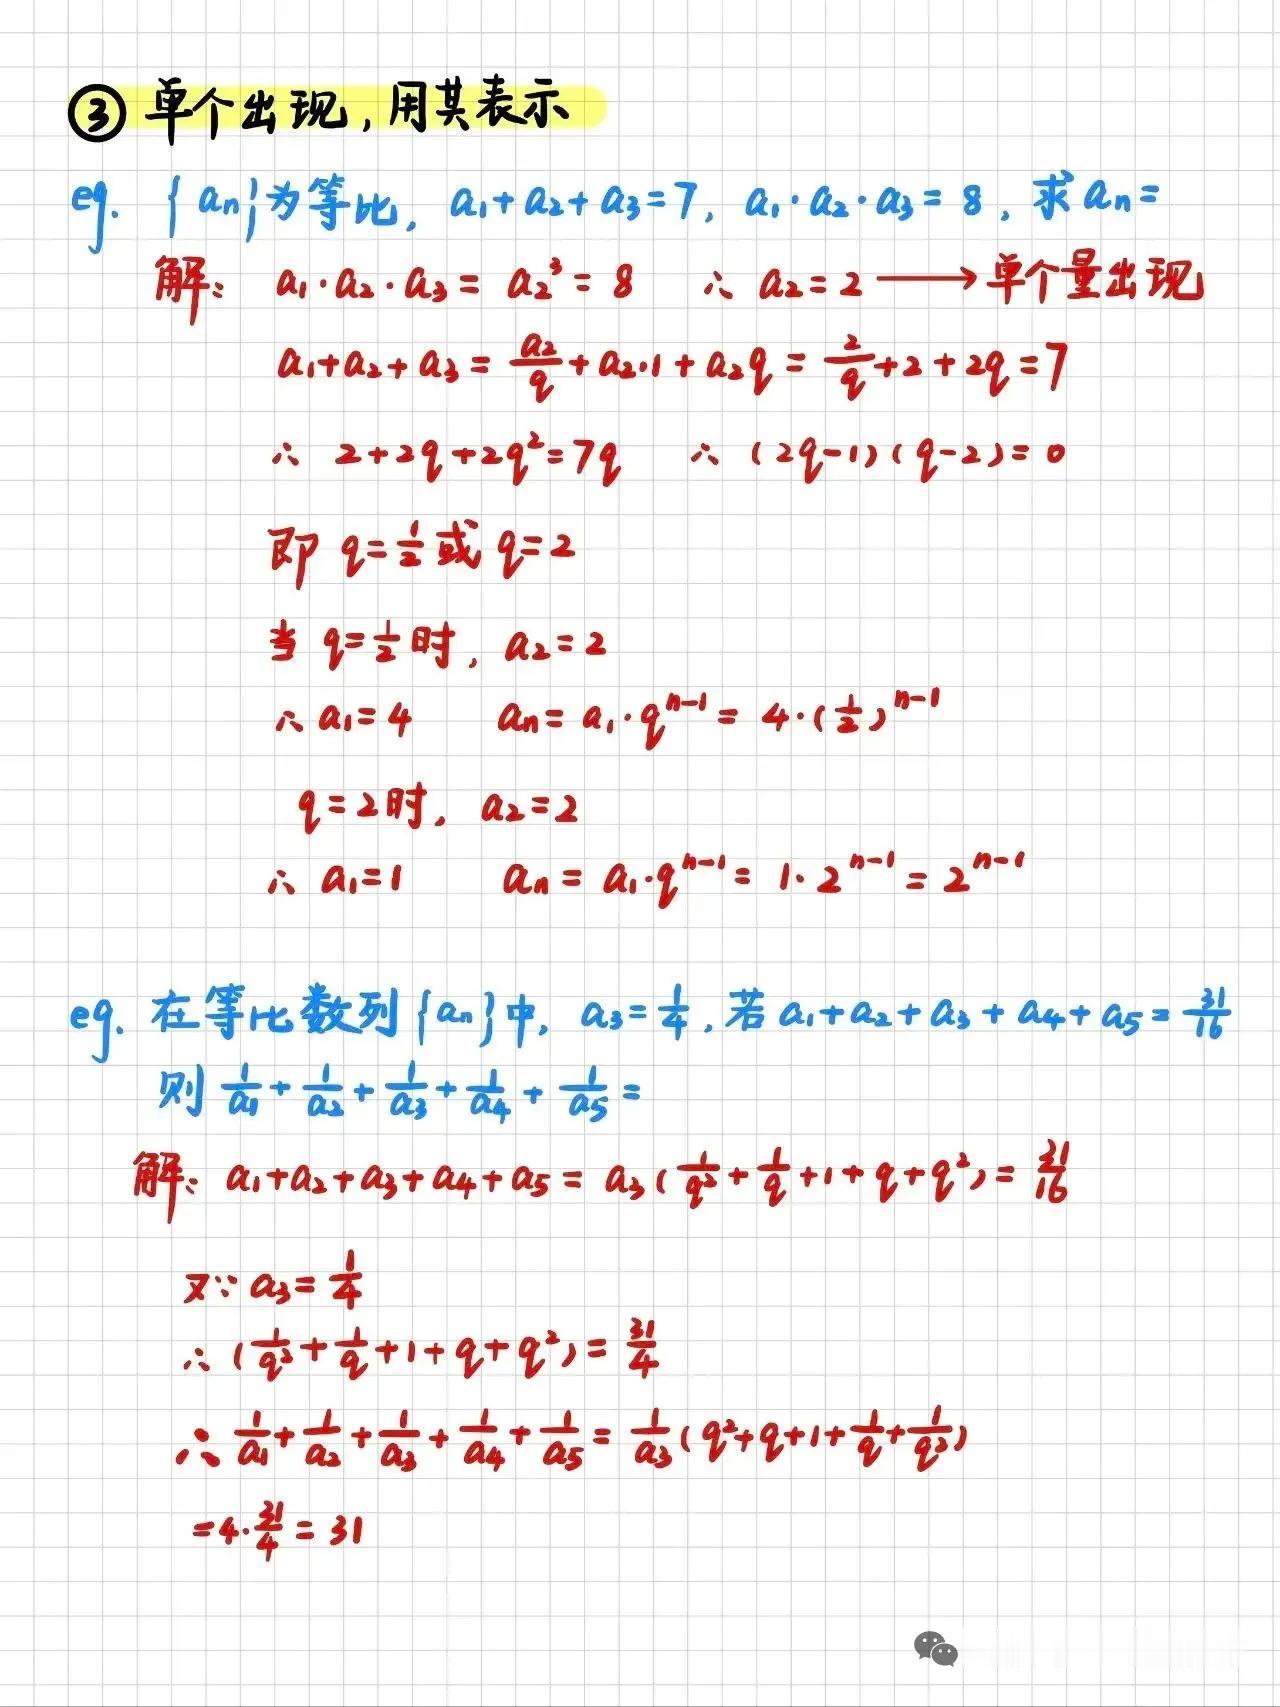 ③ 单个出现,用其表示
eg. {an}为等比, a₁+a₂+a₃=7, a₁·a₂·a₃=8, 求an=
解: a₁·a₂·a₃= a₂³=8 ∴ a₂=2 ⟶ 单个量出现
a₁+a₂+a₃= a₂/q + a₂·1 + a₂q = 2/q +2+2q=7
∴ 2+2q+2q²=7q ∴ (2q-1)(q-2)=0
即 q=1/2 或 q=2
当 q=1/2 时, a₂=2
∴ a₁=4 an= a₁·qⁿ⁻¹= 4·(1/2)ⁿ⁻¹
q=2时, a₂=2
∴ a₁=1 an= a₁·qⁿ⁻¹= 1·2ⁿ⁻¹=2ⁿ⁻¹
eg. 在等比数列{an}中, a₃=1/4, 若a₁+a₂+a₃+a₄+a₅=31/16
则 1/a₁+1/a₂+1/a₃+1/a₄+1/a₅=
解: a₁+a₂+a₃+a₄+a₅= a₃(1/q²+1/q+1+q+q²)=31/16
又∵ a₃=1/4
∴ (1/q²+1/q+1+q+q²)=31/4
∴ 1/a₁+1/a₂+1/a₃+1/a₄+1/a₅= 1/a₃(q²+q+1+1/q+1/q²)
=4·31/4=31